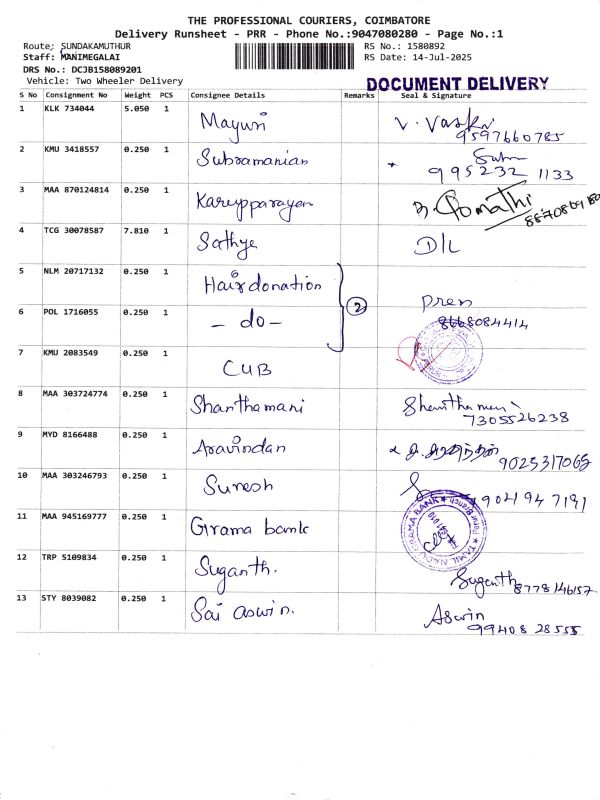 THE PROFESSIONAL COURIERS, COIMBATORE
Delivery Runsheet - PRR - Phone No.:9047080280 - Page No.:1
Route: SUNDAKAMUTHUR RS No.: 1580892
Staff: MANIMEGALAI RS Date: 14-Jul-2025
DRS No.: DCJB158089201
Vehicle: Two Wheeler Delivery
DOCUMENT DELIVERY
S No Consignment No Weight PCS Consignee Details Remarks Seal & Signature
1 KLK 734044 5.050 1 Mayuri V. Vaski
9597660785
2 KMU 3418557 0.250 1 Subramanian
995232 1133
3 MAA 870124814 0.250 1 Karupparayan B. Gomathi
4 TCG 30078587 7.810 1 Sathye D/L
5 NLM 20717132 0.250 1 Hair donation Pren
6 POL 1716055 0.250 1 - do - 2 8668084414
7 KMU 2083549 0.250 1 CUB
8 MAA 303724774 0.250 1 Shanthamani Shanthamani
7305526238
9 MYD 8166488 0.250 1 Aravindan
9025317065
10 MAA 303246793 0.250 1 Suresh 9041947191
11 MAA 945169777 0.250 1 Grama bank
TAMIL NADU GRAMA BANK
12 TRP 5109834 0.250 1 Suganth. Suganth
8778146157
13 STY 8039082 0.250 1 Sai aswin. Aswin
99408 28555